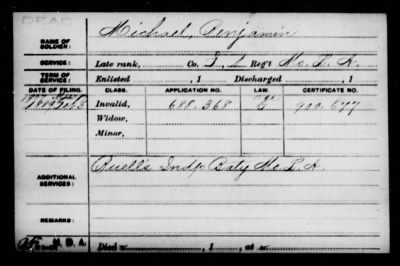 DEAD
NAME OF SOLDIER: Michael, Benjamin
SERVICE: Late rank, Co. I, 1 Reg't Mo. L. A.
TERM OF SERVICE: Enlisted , 1 Discharged , 1
DATE OF FILING. CLASS. APPLICATION NO. LAW. CERTIFICATE NO.
Invalid, 688.368 900.577
Widow,
Minor,
ADDITIONAL SERVICES: Buell's Indp. Baty Mo. L. A.
REMARKS:
Died , 1 , at